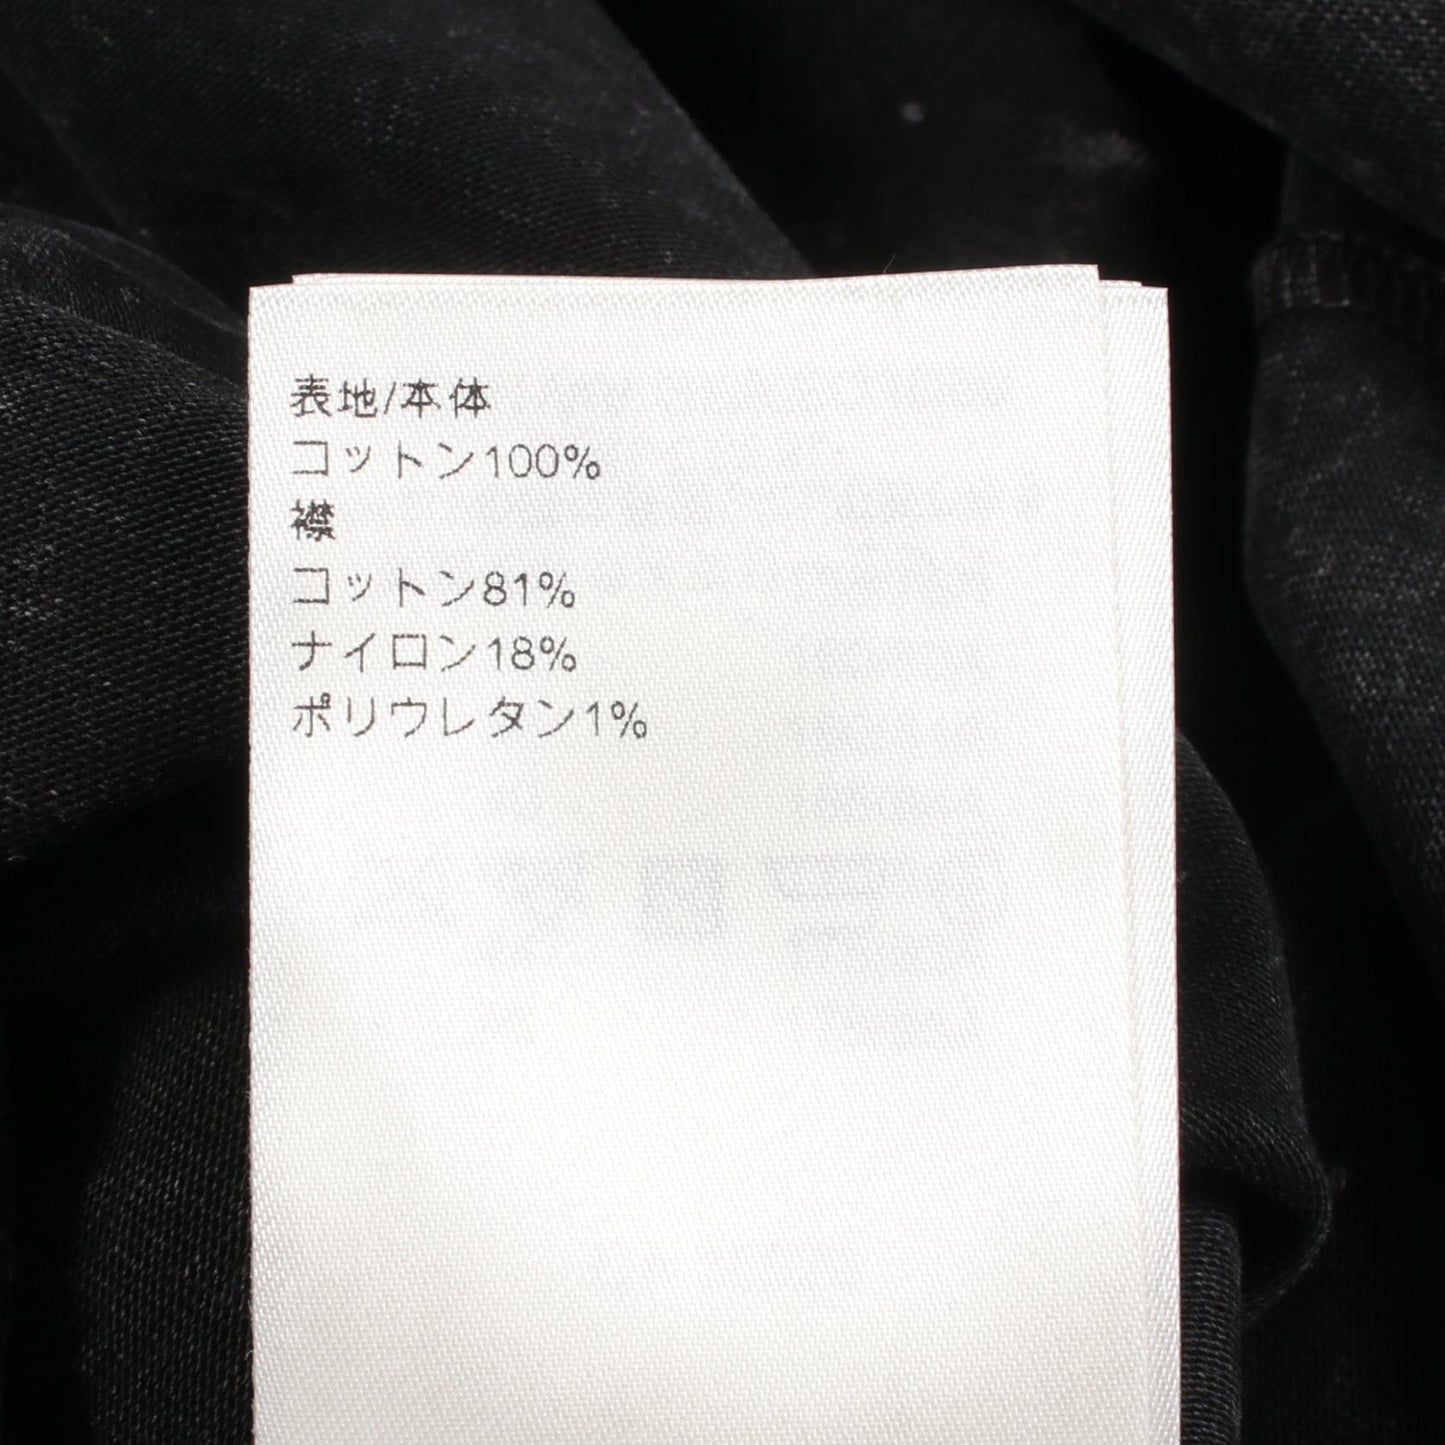 表地/本体
コットン100%
襟
コットン81%
ナイロン18%
ポリウレタン1%